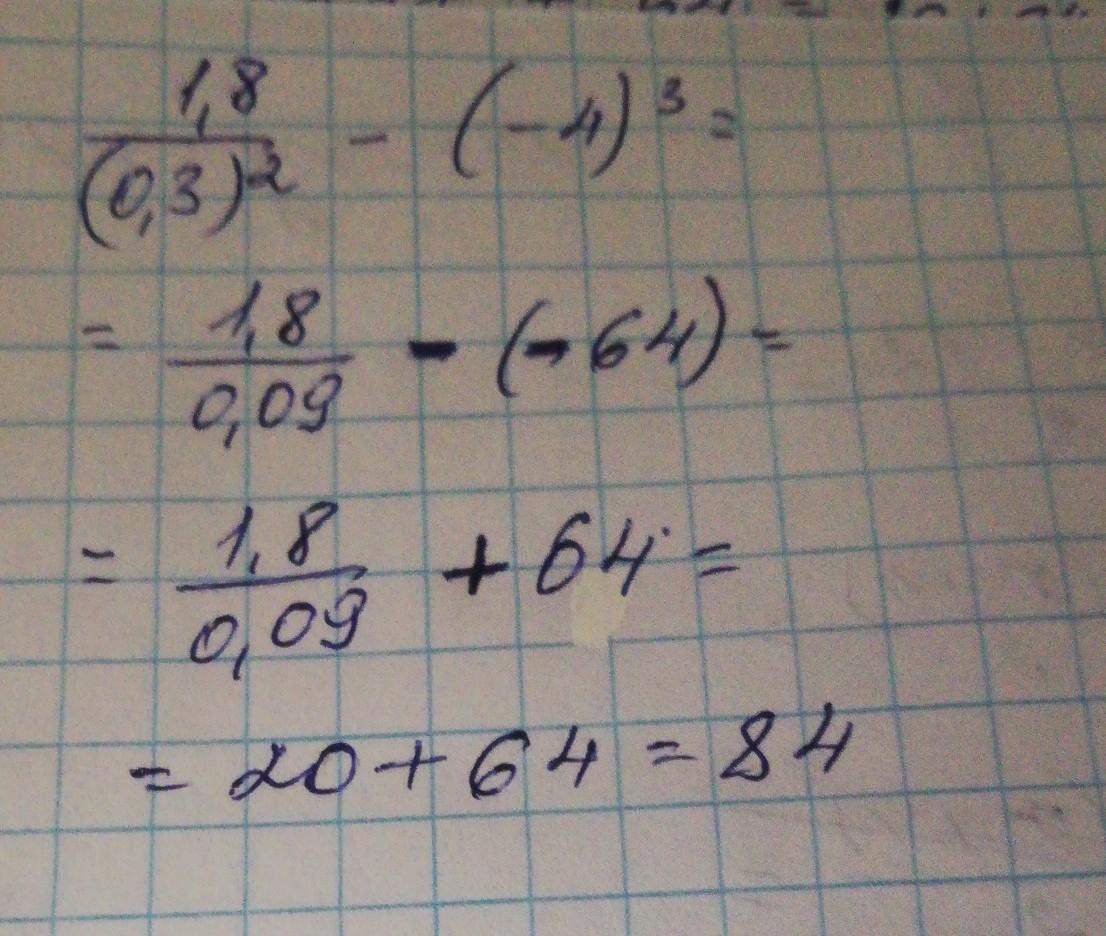 1,8/(0,3)² - (-4)³ =
= 1,8/0,09 - (-64) =
= 1,8/0,09 + 64 =
= 20 + 64 = 84